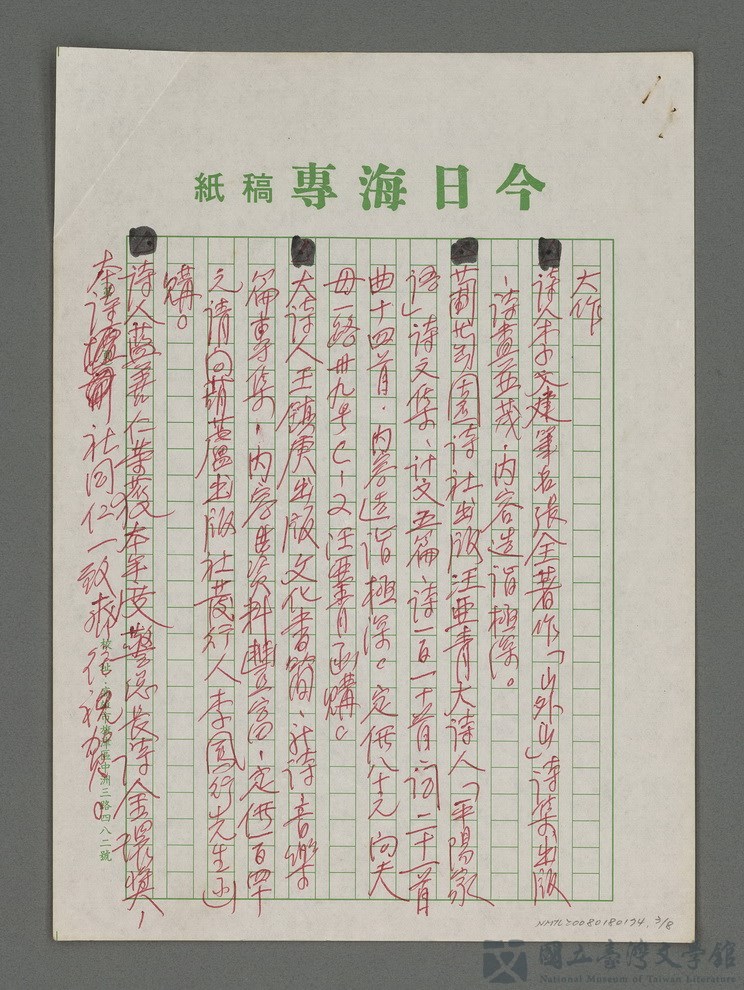 今日海專稿紙
大作
詩人李文建筆名張全著作「山外山」詩集出版
，詩畫並茂，內容造詣極深。
葡萄園詩社出版汪亞青大詩人「平陽家
語」詩文集、計文五篇、詩一百一十首、詞二十一首
曲十四首，內容造詣極深。定價八十元 向
一路卅九号C-2 汪亞青函購。
大詩人王鎮庚出版文化書簡、新詩、音樂
篇專集，內容資料豐富，定價一百四十
元請向葫蘆出版社發行人李先生函
購。
詩人藍善仁榮獲本年度警总長詩金環獎，
本詩社同仁一致祝賀。
中洲三路四八二號
NMTL20080180174, 3/8
國立臺灣文學館
National Museum of Taiwan Literature